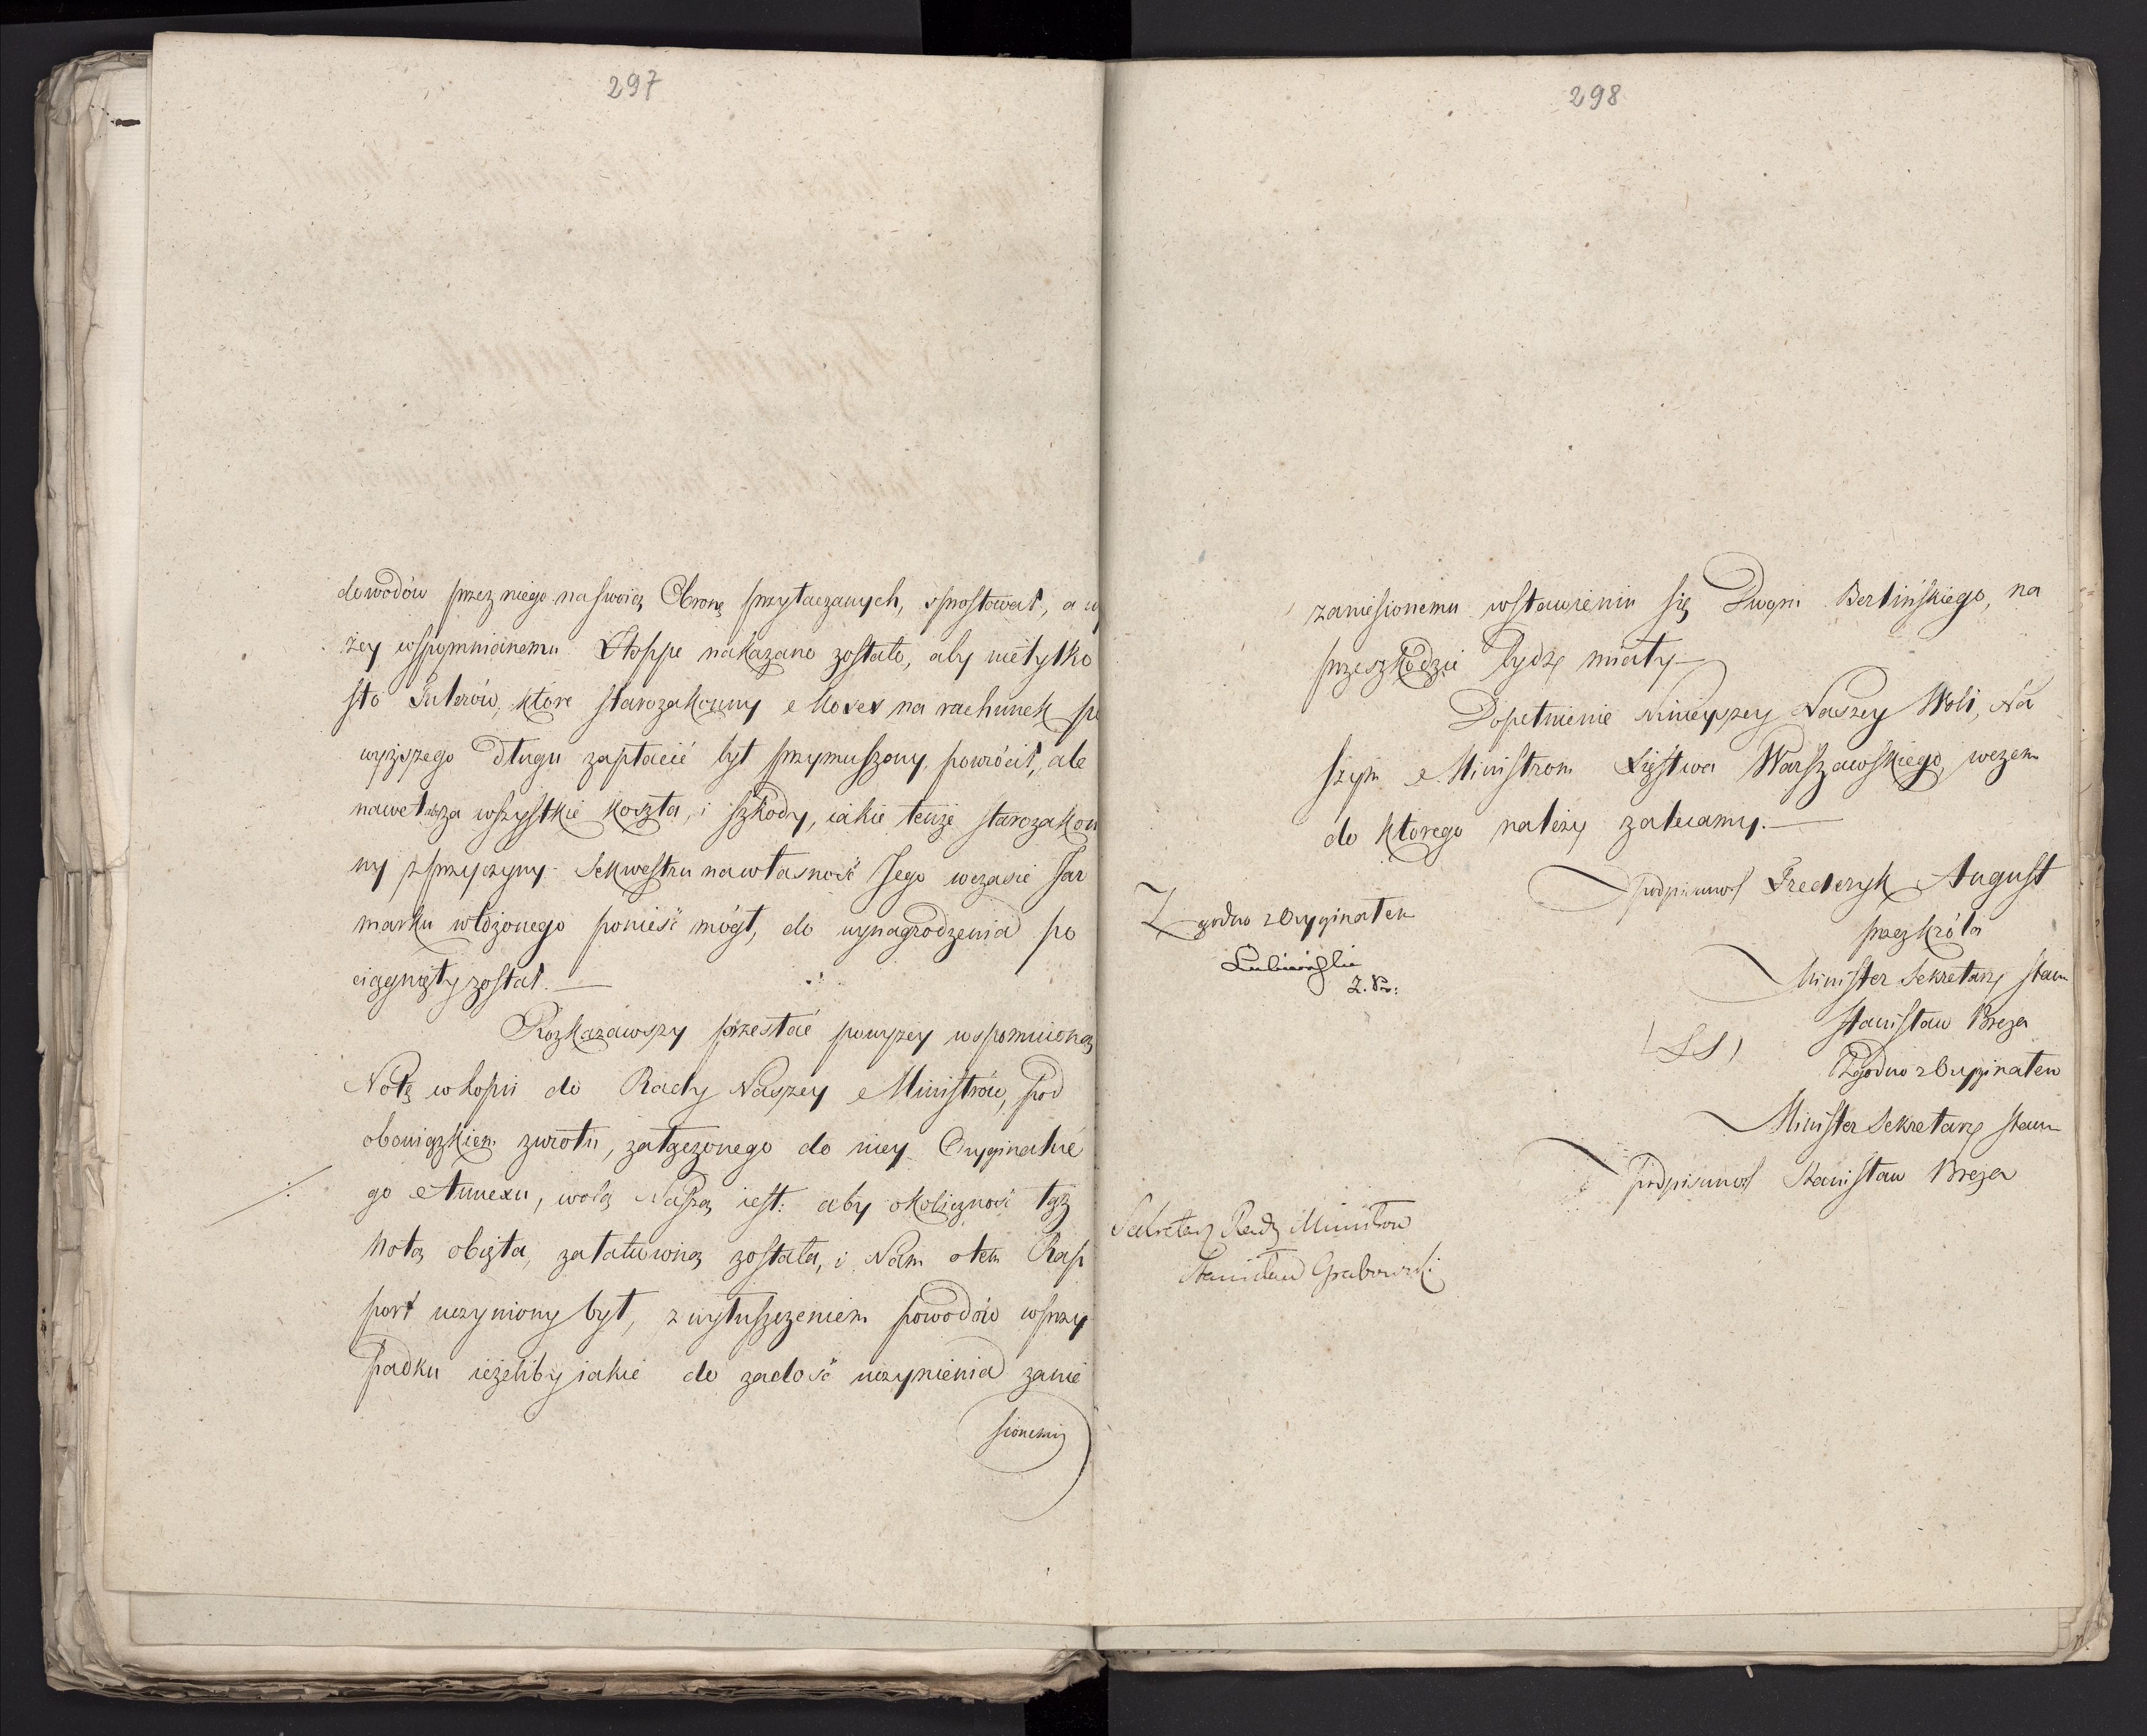 297
dowodów przez niego na swoią Obronę przytaczanych, spostował, a wy
żey wspomnianemu Stoppe nakazano zostało, aby nietylko
sto Talerów, które starozakonny Moses na rachunek po
wyższego Długu zapłacić był przymuszony, powrócił, ale
nawet za wszystkie koszta, i szkody, iakie tenże starozakon
ny z przyczyny Sekwestru na własność Jego w czasie Jar
marku włożonego ponieść mógł, do wynagrodzenia po
ciągnięty został.
Rozkazawszy przesłać powyżey wspomnioną
Notę w kopii do Rady Naszey Ministrów, pod
obowiązkiem zwrotu, załączonego do niey Oryginalne
go Annexu, wolą Naszą iest: aby okoliczność tąż
Notą obięta, załatwioną została, i Nam o tem Rap
port uczyniony był, z wyłuszczeniem powodów w przy
padku ieżeliby iakie do zadość uczynienia zanie
sionemu
298
zaniesionemu wstawieniu się Dworu Berlińskiego, na
przeszkodzie bydź miały
Dopełnienie Ninieyszey Naszey Woli, Na
szym Ministrom Xięstwa Warszawskiego, w czem
do którego należy zalecamy.
podpisano Frederyk August
przez Króla
Minister Sekretarz stanu
Stanisław Breza
(LS)
Zgodno z Oryginałem
Minister Sekretarz stanu
podpisano Stanisław Breza
Zgodno z Oryginałem
Sekretarz Rady Ministrów
Stanisław Grabowski